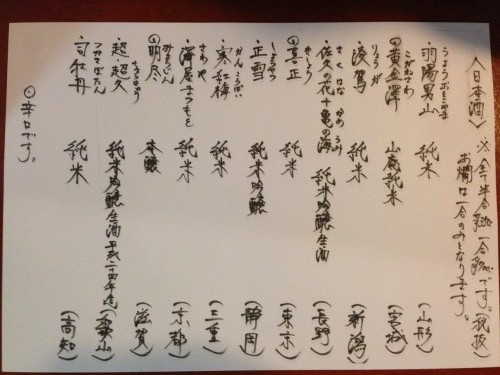 〈日本酒〉 ※全て半合 一合 です。(税抜)
お燗は一合のみとなります。
・羽陽男山 純米 (山形)
うようおとこやま
◎黄金澤 山廃純米 (宮城)
こがねさわ
・凌駕 純米 (新潟)
りょうが
・佐久の花+亀の海 純米吟醸生酒 (長野)
さく はな かめ うみ
◎喜正 純米 (東京)
きしょう
・正雪 純米吟醸 (静岡)
しょうせつ
・寒紅梅 純米 (三重)
かんこうばい
・澤屋まつもと 純米 (京都)
さわや
◎明尽 本醸 (滋賀)
・超・超久 純米吟醸生酒 平成二十四年
・司牡丹 純米 (高知)
つかさぼたん
◎辛口です。